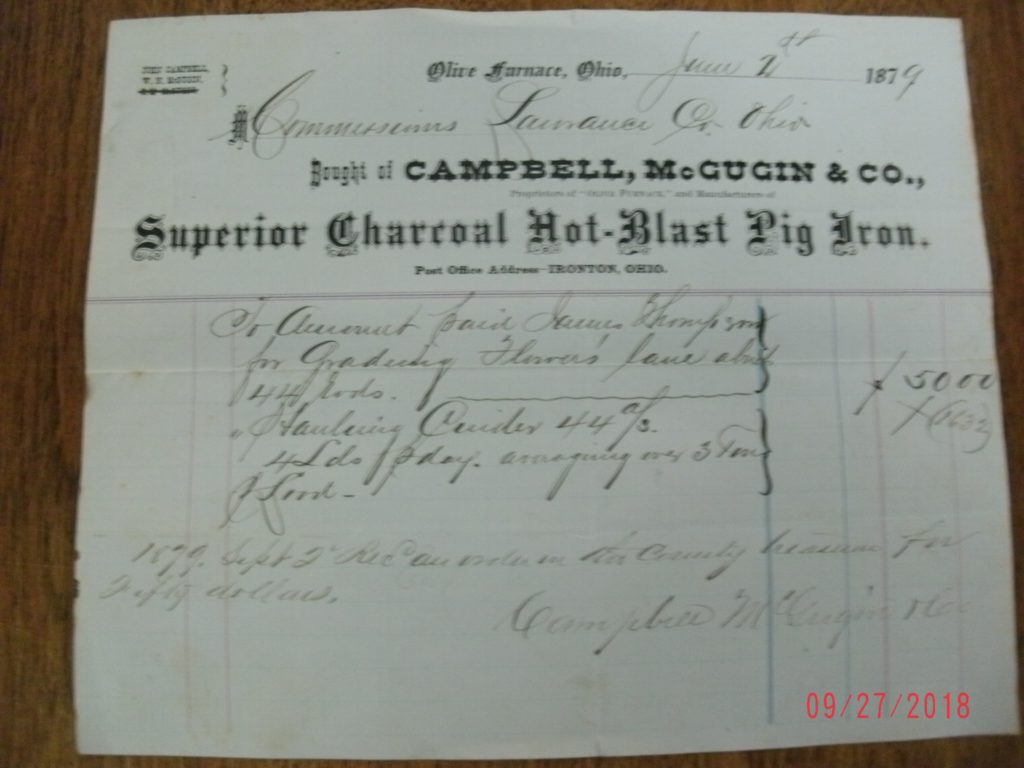 JOHN CAMPBELL,
W. N. McGUGIN,
Olive Furnace, Ohio, June 2nd 1879
M Commissioners Lawrance Co. Ohio
Bought of CAMPBELL, McGUGIN & CO.,
Proprietors of "OLIVE FURNACE," and Manufacturers of
Superior Charcoal Hot-Blast Pig Iron.
Post Office Address—IRONTON, OHIO.
To Amount paid James Thompson
for Grading Flowers lane about
44 rods. $ 50 00
" Hauling Cinder 44
4 Lds p day. averaging over 3 Tons
p Load -
1879. Sept 2d Rec an order on the County Treasurer for
Fifty dollars.
Campbell McGugin & Co
09/27/2018